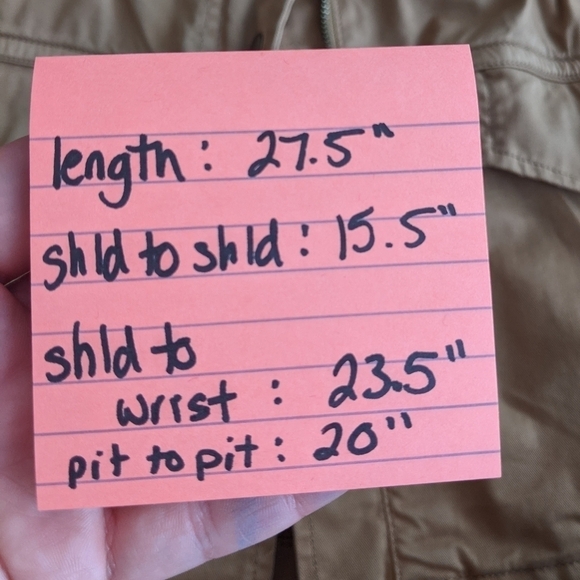 length: 27.5"
shld to shld: 15.5"
shld to
wrist : 23.5"
pit to pit: 20"